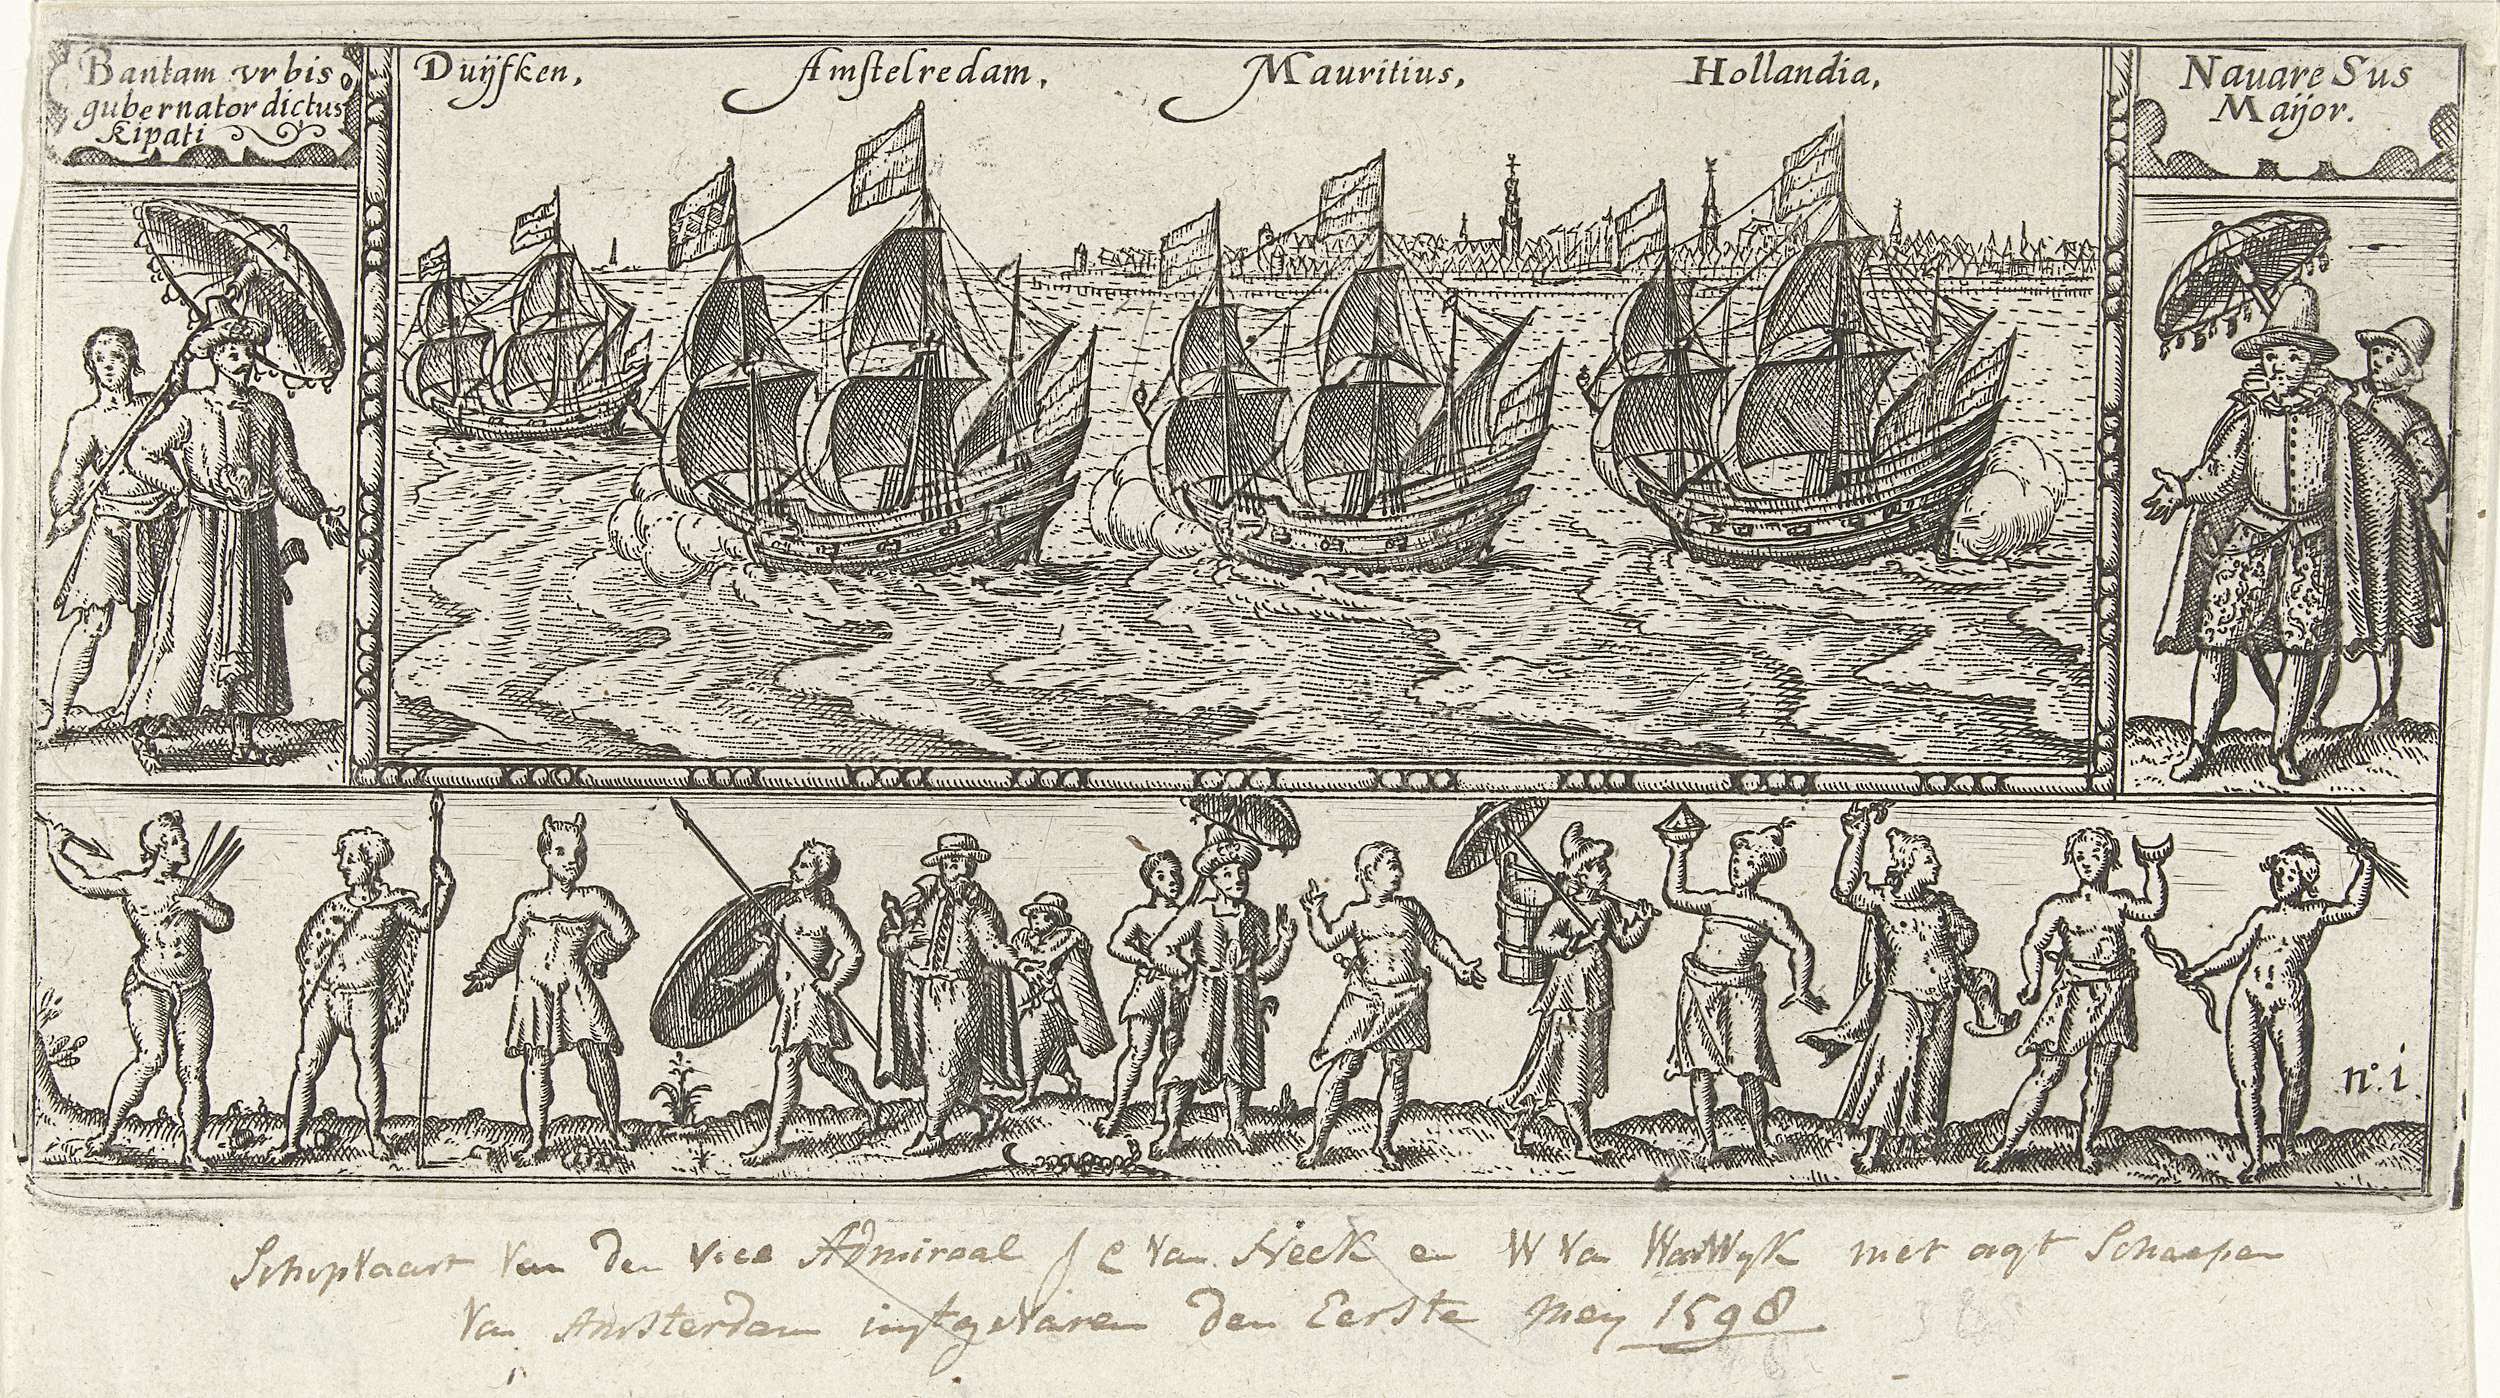 Bantam vrbis
gubernator dictus
Kipati
Duijfken,
Amstelredam,
Mauritius,
Hollandia,
Nauare Sus
Maijor.
n.º i
Schipvaart Van den Vice Admiraal J C Van Neck en W Van WarWyk met agt Scheepen
Van Amsterdam uytgevaren den Eerste Mey 1598